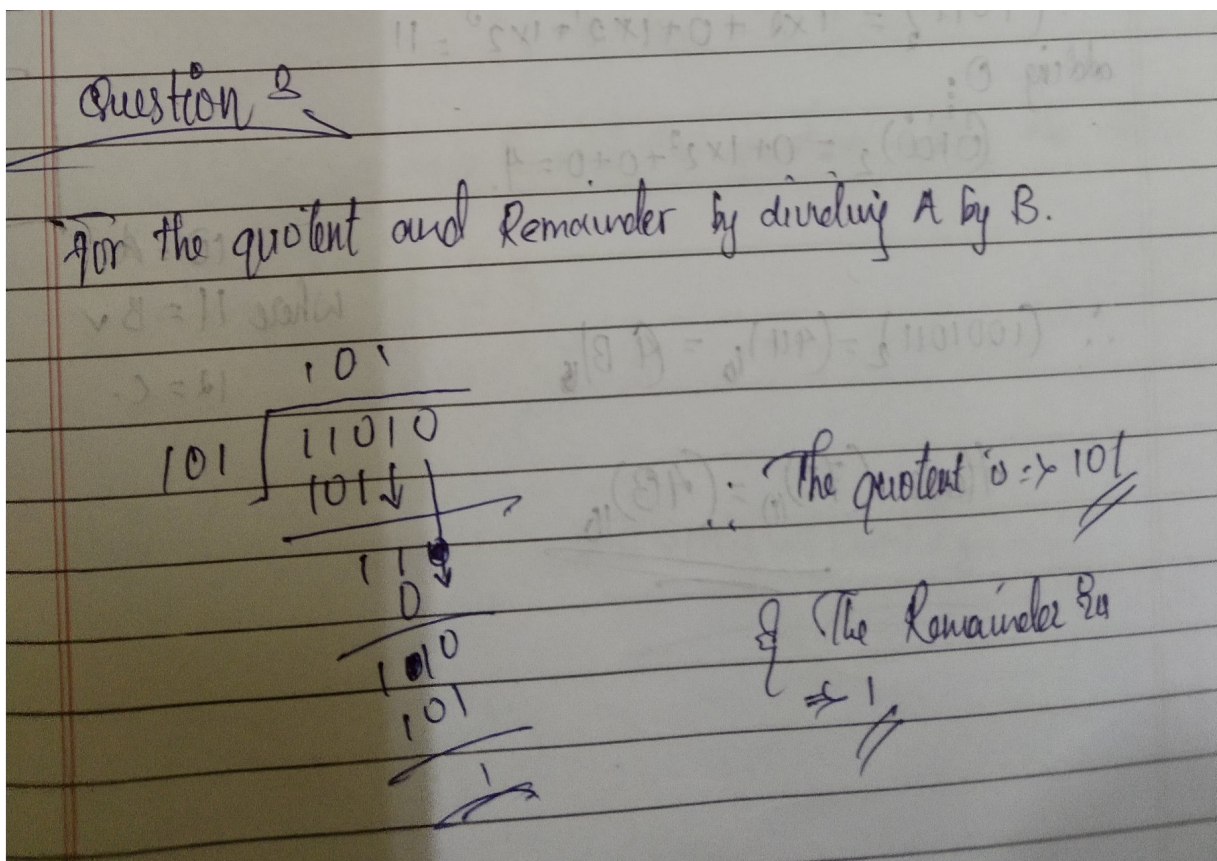 Question 2
For the quotent and Remainder by dividing A by B.
101
101 11010
101
11
0
110
101
1
∴ The quotent is => 101
& The Remainder is
=> 1